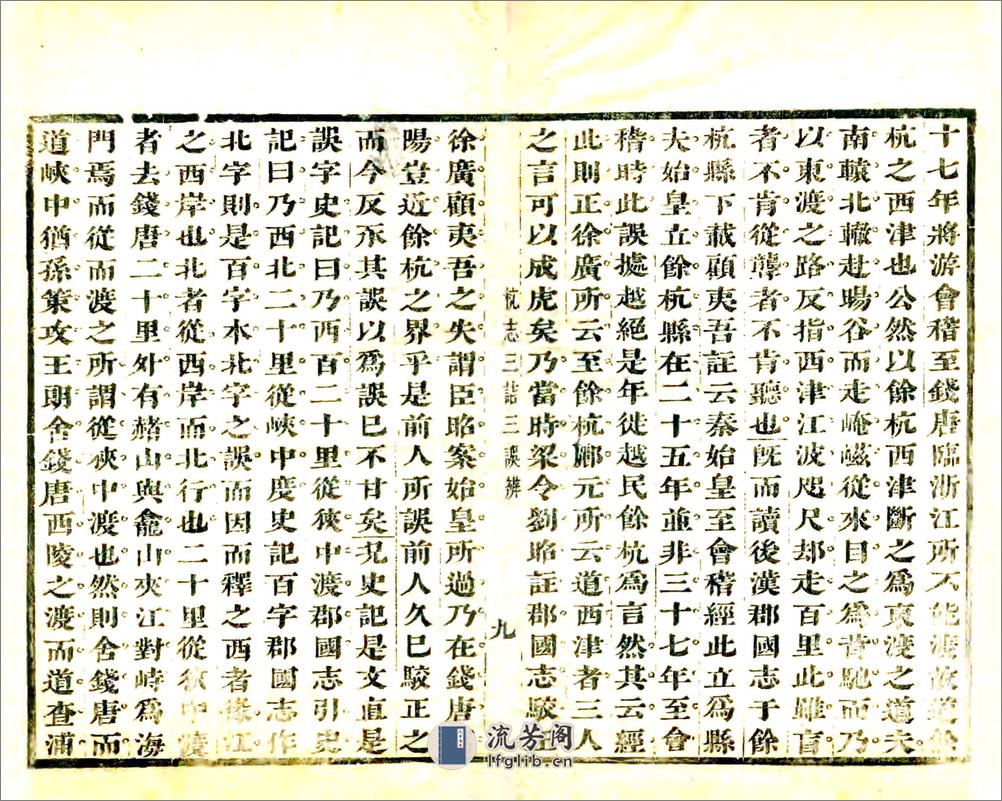 十七年將游會稽至錢唐臨浙江所不能渡故道餘
杭之西津也公然以餘杭西津斷之爲東渡之道夫
南轅北轍赴暘谷而走崦嵫從來目之爲菅馳而乃
以東渡之路反指西津江波咫尺却走百里此雖盲
者不肯從聾者不肯聽也旣而讀後漢郡國志于餘
杭縣下載顧夷吾註云秦始皇至會稽經此立爲縣
夫始皇立餘杭縣在二十五年並非三十七年至會
稽時此誤據越絕是年徙越民餘杭爲言然其云經
此則正徐廣所云至餘杭酈元所云道西津者三人
之言可以成虎矣乃當時梁令劉昭註郡國志駮正
杭志三詰三誤辨
九
徐廣顧夷吾之失謂臣昭案始皇所過乃在錢唐
陽豈近餘杭之界乎是前人所誤前人久已駮正之
而今反承其誤以爲誤已不甘矣况史記是文直是
誤字史記曰乃西百二十里從狹中渡郡國志引史
記曰乃西北二十里從峽中度史記百字郡國志作
北字則是百字本北字之誤而因而釋之西者緣江
之西岸也北者從西岸而北行也二十里從狹中渡
者去錢唐二十里外有赭山與龕山夾江對峙爲海
門焉而從而渡之所謂從狹中渡也然則舍錢唐而
道峽中猶孫策攻王朗舍錢唐西陵之渡而道查浦
流芳阁
lfglib.cn